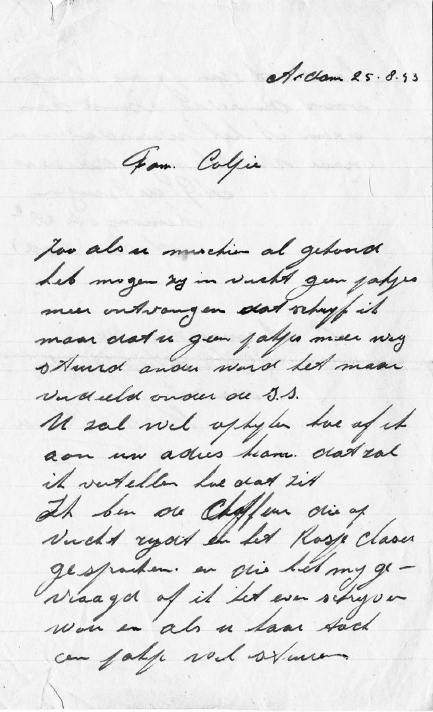 A-dam 25-8-43
Fam. Colpie
Zoo als u misschien al gehoord
heb mogen zij in vucht geen pakjes
meer ontvangen dat schrijf ik
maar dat u geen pakjes meer weg
stuurd ander word het maar
verdeeld onder de S.S.
U zal wel opkijken hoe of ik
aan uw adres kom. dat zal
ik vertellen hoe dat zit
Ik ben de Chauffeur die op
Vucht rijdt en het Roosje Claser
gesproken. en die het mij ge-
vraagd of ik het even schrijven
wou en als u haar toch
een pakje wil sturen